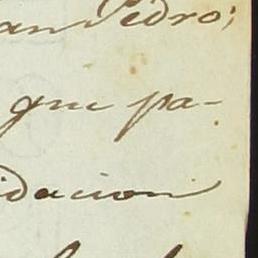 an Pedro;
que pa-
idacion